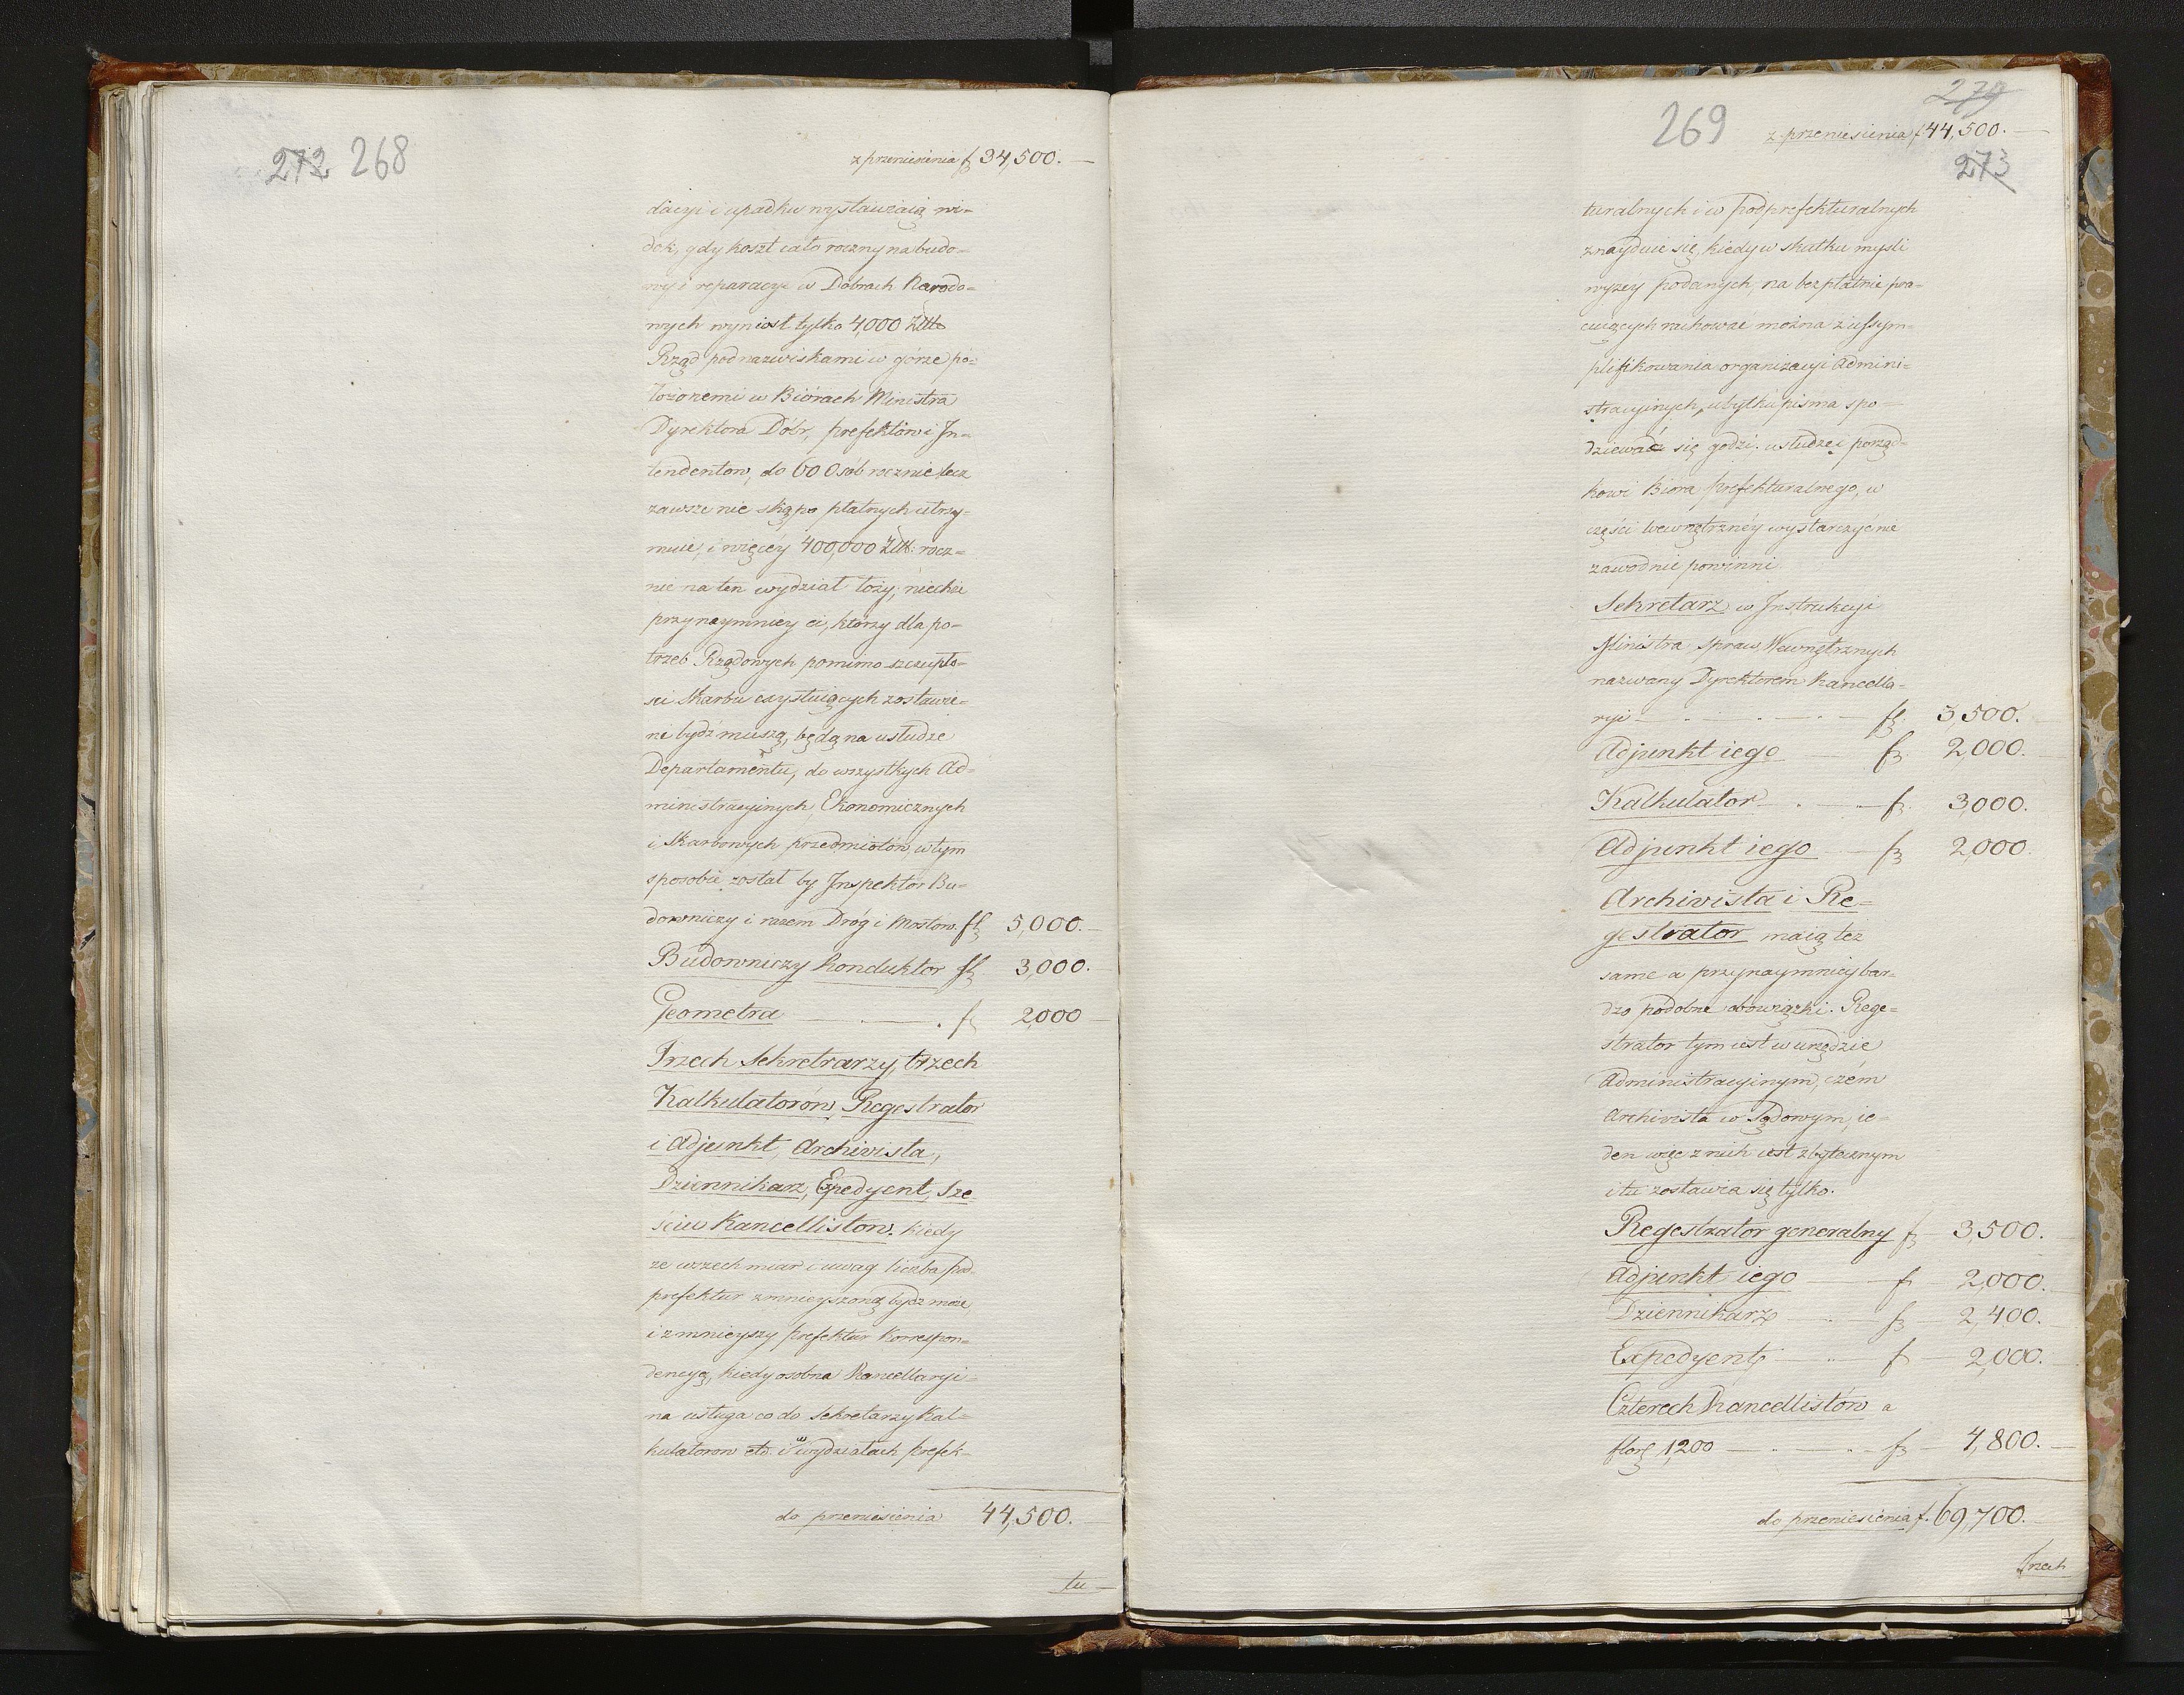 272 268
z przeniesienia f 34,500.
dacyi i upadku wystawiaią wi-
dok, gdy koszt cało roczny na budo-
wy i reparacye w Dobrach Narodo-
wych wyniosł tylko 4,000 Złtto
Rząd pod nazwiskami w górze po-
łożonemi w Biórach Ministra
Dyrektora Dóbr, prefektów i In-
tendentow, do 60 Osób rocznie lecz
zawsze nie skąpo płatnych utrzy-
muie, i więcéy 400,000 Złtt: rocz-
nie na ten wydział łoży; niechże
przynaymniey ci, którzy dla po-
trzeb Rządowych pomimo szczupło-
sci Skarbu exystuiących zostawie-
ni bydź muszą, będą na usłudze
Departamentu, do wszystkych Ad-
ministracyinych, Ekonomicznych
i Skarbowych przedmiotów, w tym
sposobie został by Inspektor Bu-
downiczy i razem Dróg i Mostow. fl 5,000.
Budowniczy Konduktor fl 3,000.
Geometra f 2,000
Trzech Sekretrarzy, trzech
Kalkulatorów, Regestrator
i Adjunkt, Archivista,
Dziennikarz, Expedyent, Sze
ściu Kancellistow. kiedy
ze wszech miar i uwag liczba pod-
prefektur zmnieyszoną bydz może,
i zmnieyszy prefektur Korrespon-
dencyą, kiedy osobna Kancellaryi-
na usługa co do Sekretarzy Kal-
kulatorow etc. i w wydziałach prefek-
do przeniesienia 44,500.
tu
269
279
z przeniesienia f 44,500.
273
turalnych i w podprefekturalnych
znayduie się, kiedy w skutku mysli
wyżéy podanych, na bezpłatnie pra-
cuiących rachować można z ussym-
plifikowania organizacyi Admini-
stracyinych, ubytku pisma spo-
dziewać się godzi. usłudze i porząd-
kowi Biora prefekturalnego, w
części wewnętrznéy wystarczyć nie
zawodnie powinni
Sekretarz w Instrukcyi
Ministra spraw Wewnętrznych
nazwany Dyrektorem Kancella-
ryi f 3,500.
Adjunkt iego f 2,000.
Kalkulator f 3,000.
Adjunkt iego f 2,000.
Archivista i Re-
gestrator maią też
same a przynaymniey bar-
dzo podobne obowiązki. Rege-
strator tym iest w urzędzie
Administracyinym, czém
Archivista w Sądowym, ie-
den więc z nich iest zbytecznym
i tu zostawia się tylko.
Regestrator generalny f 3,500.
Adjunkt iego f 2,000.
Dziennikarz f 2,400.
Expedyent f 2,000.
Czterech Kancellistów a
flor 1,200 f 4,800.
do przeniesienia f. 69,700.
Trzech